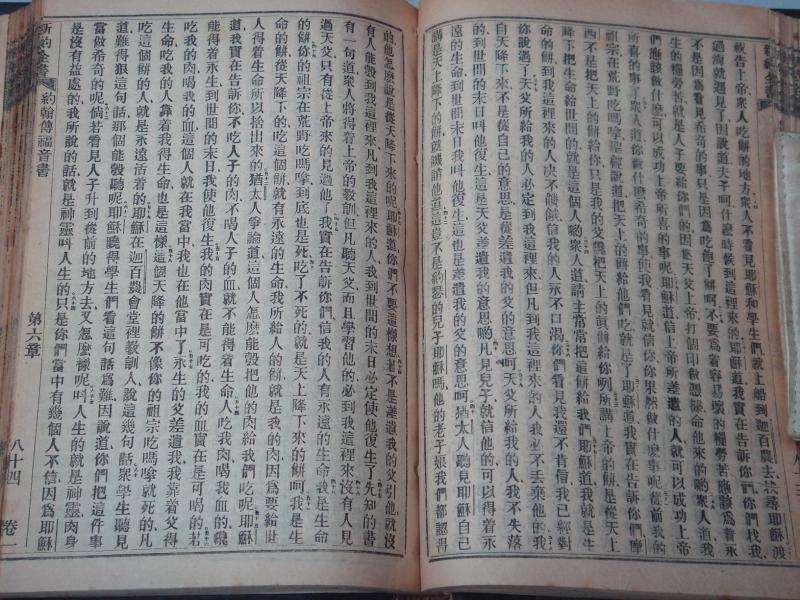 祝告上帝衆人吃餅的地方衆人不看見耶穌和學生們就上船到迦百農去找尋耶穌渡
過海就遇見了因說道夫子呵什麼時候到這裡來的耶穌道我實在告訴你們你們找我
不是因爲看見希奇的事只是因爲吃飽了餅呵不要爲着容易壞的糧勞苦應該爲着永
生的糧勞苦就是人子要給你們的因爲天父上帝打個印做憑據命他來的喲衆人道我
們應該做什麼可以成功上帝所喜的事呢耶穌道信上帝所差遣的人就可以成功上帝
所喜的事了衆人道你做什麼希奇的事使我看見就信你你果然做什麼事呢從前我的
祖宗在荒野吃嗎嗱聖經說道把天上的餅給他們吃就是了耶穌道我實在告訴你們摩
西不是把天上的餅給你只是我的父纔把天上的眞餅給你咧所講上帝的餅就是從天
降下把生命給世間的就是這個人喲衆人道請主常常把這餅給我們耶穌道我就是生
命的餅到我這裡來的人決不能餓信我的人永不口渴你們看見我還不肯信我已經對
你說過了天父所給我的人必定到我這裡來但凡到我這裡來的人我必不丢棄他的我
自天降下來不是從自己的意思是從差遣我的父的意思呵天父所給我的人我不失落
到世間末日叫他復生這是天父差遣我的意思喲凡見兒子就信他的可以得着永
遠的生命到世間末日我叫他復生這也是差遣我的父的意思呵猶太人聽見耶穌自己
講是天上降下的餅就譏誚他道這豈不是約瑟的兒子耶穌嗎他的老子娘我們都認得
的他怎麼說是從天降下來的呢耶穌道你們不要這樣想着不是差遣我的父引他就沒
有人能彀到我這裡來凡到我這裡來的人我到世間的末日必定使他復生了先知的書
有一句道衆人將得着上帝的敎訓但凡聽天父而且學習他的必到我這裡來沒有人見
過天父只有從上帝來的見過他了我實在告訴你們信我的人有永遠的生命我是生命
的餅你的祖宗在荒野吃嗎嗱到底也是死吃了不死的就是天上降下來的餅呵我是生
命的餅從天降下的吃這個餅就有永遠的生命我所給人的餅就是我的肉因爲要給世
人得着生命所以捨出來的猶太人爭論道這個人怎麼能彀把他的肉給我們吃呢耶穌
道我實在告訴你不吃人子的肉不喝人子的血就不能得着生命人吃我肉喝我血的纔
能得着永生到世間的末日我使他復生我的肉實在是可吃的我的血實在是可喝的若
吃我的肉喝我的血這個人就在我當中我也在他當中了永生的父差遣我我靠着父得
生命吃我的人靠着我得生命也是這樣這個天降的餅不像你的祖宗吃嗎嗱就死的凡
吃這個餅的人就是永遠活着的耶穌在迦百農會堂裡敎訓人說這幾句話衆學生聽見
道難得狠這句話那個能彀聽呢耶穌曉得學生們看這句話爲難因說道你們把這件事
當做希奇的呢倘若看見人子升到從前的地方去又怎麼樣呢叫人生的就是神靈肉身
是沒有益處的我所說的話就是神靈叫人生的只是你們當中有幾個人不信因爲耶穌
新約全書
約翰傳福音書
第六章
八十四
卷一